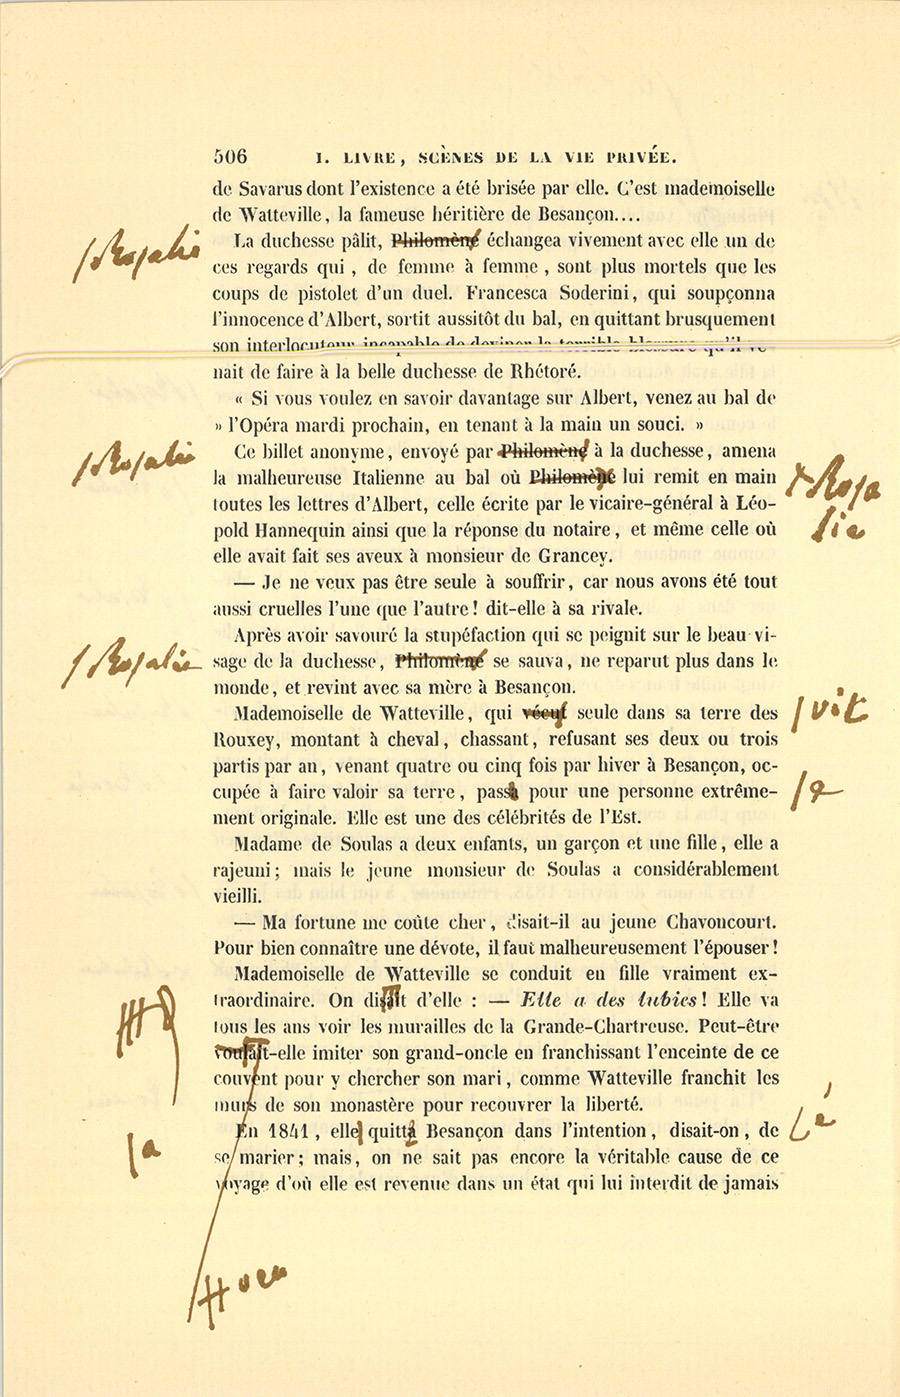 506 I. LIVRE, SCÈNES DE LA VIE PRIVÉE.
de Savarus dont l'existence a été brisée par elle. C'est mademoiselle
de Watteville, la fameuse héritière de Besançon....
Rosalie
La duchesse pâlit, Philomène échangea vivement avec elle un de
ces regards qui, de femme à femme, sont plus mortels que les
coups de pistolet d'un duel. Francesca Soderini, qui soupçonna
l'innocence d'Albert, sortit aussitôt du bal, en quittant brusquement
son interlocuteur incapable de deviner la terrible blessure qu'il ve-
nait de faire à la belle duchesse de Rhétoré.
« Si vous voulez en savoir davantage sur Albert, venez au bal de
» l'Opéra mardi prochain, en tenant à la main un souci. »
Rosalie
Ce billet anonyme, envoyé par Philomène à la duchesse, amena
la malheureuse Italienne au bal où Philomène lui remit en main
Rosa
lie
toutes les lettres d'Albert, celle écrite par le vicaire-général à Léo-
pold Hannequin ainsi que la réponse du notaire, et même celle où
elle avait fait ses aveux à monsieur de Grancey.
— Je ne veux pas être seule à souffrir, car nous avons été tout
aussi cruelles l'une que l'autre! dit-elle à sa rivale.
Après avoir savouré la stupéfaction qui se peignit sur le beau vi-
Rosalie
sage de la duchesse, Philomène se sauva, ne reparut plus dans le
monde, et revint avec sa mère à Besançon.
Mademoiselle de Watteville, qui vécut seule dans sa terre des
vit
Rouxey, montant à cheval, chassant, refusant ses deux ou trois
partis par an, venant quatre ou cinq fois par hiver à Besançon, oc-
cupée à faire valoir sa terre, passa pour une personne extrême-
e
ment originale. Elle est une des célébrités de l'Est.
Madame de Soulas a deux enfants, un garçon et une fille, elle a
rajeuni; mais le jeune monsieur de Soulas a considérablement
vieilli.
— Ma fortune me coûte cher, disait-il au jeune Chavoncourt.
Pour bien connaître une dévote, il faut malheureusement l'épouser!
Mademoiselle de Watteville se conduit en fille vraiment ex-
traordinaire. On disait d'elle : — Elle a des lubies! Elle va
tous les ans voir les murailles de la Grande-Chartreuse. Peut-être
voulait-elle imiter son grand-oncle en franchissant l'enceinte de ce
couvent pour y chercher son mari, comme Watteville franchit les
murs de son monastère pour recouvrer la liberté.
En 1841, elle quitta Besançon dans l'intention, disait-on, de
é
a
se marier; mais, on ne sait pas encore la véritable cause de ce
voyage d'où elle est revenue dans un état qui lui interdit de jamais